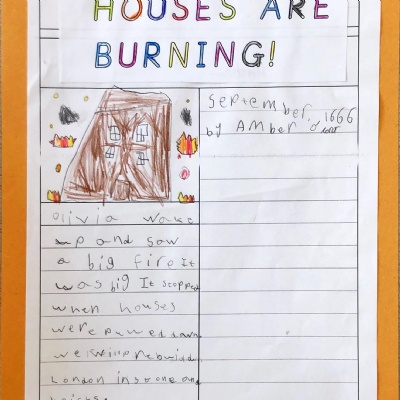 HOUSES ARE
BURNING!
September, 1666
by Amber
Olivia wake
up and saw
a big fire It
was big It stopped
when houses
were puwed down
we
London in stone and